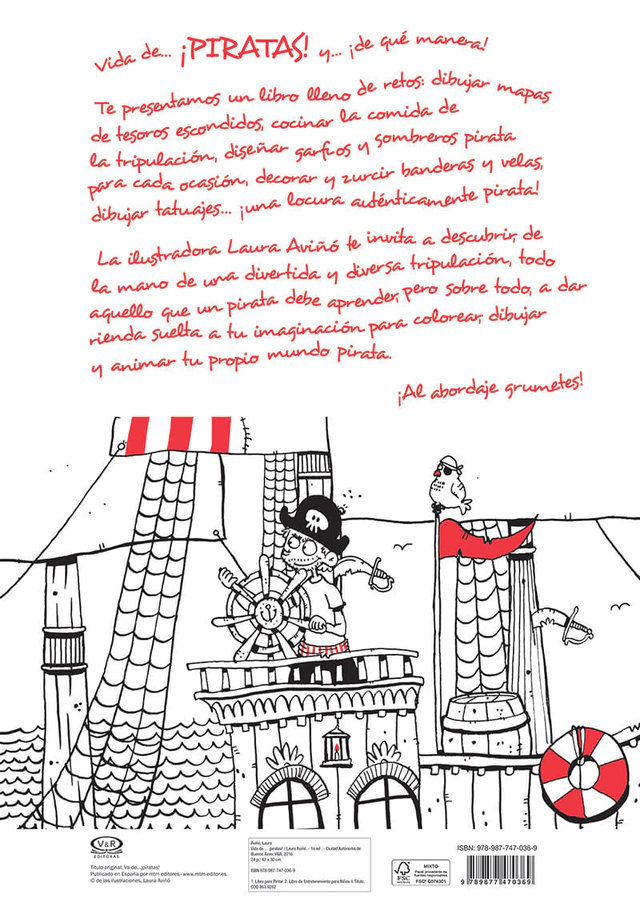 Vida de... ¡PIRATAS! y... ¡de qué manera!
Te presentamos un libro lleno de retos: dibujar mapas
de tesoros escondidos, cocinar la comida de
la tripulación, diseñar garfios y sombreros pirata
para cada ocasión, decorar y zurcir banderas y velas,
dibujar tatuajes... ¡una locura auténticamente pirata!
La ilustradora Laura Aviñó te invita a descubrir, de
la mano de una divertida y diversa tripulación, todo
aquello que un pirata debe aprender, pero sobre todo, a dar
rienda suelta a tu imaginación para colorear, dibujar
y animar tu propio mundo pirata.
¡Al abordaje grumetes!
V&R
EDITORAS
Título original: Va de...¡piratas!
Publicado en España por mtm editores - www.mtm-editor.es
© de las ilustraciones, Laura Aviñó
Aviñó, Laura
Vida de... ¡piratas! / Laura Aviñó. - 1a ed . - Ciudad Autónoma de
Buenos Aires: V&R, 2016.
24 p.; 42 x 30 cm.
ISBN 978-987-747-036-9
1. Libro para Pintar. 2. Libro de Entretenimiento para Niños. I. Título.
CDD 863.9282
FSC
MIXTO
Papel procedente de
fuentes responsables
FSC® C074301
ISBN: 978-987-747-036-9
9 789877 470369